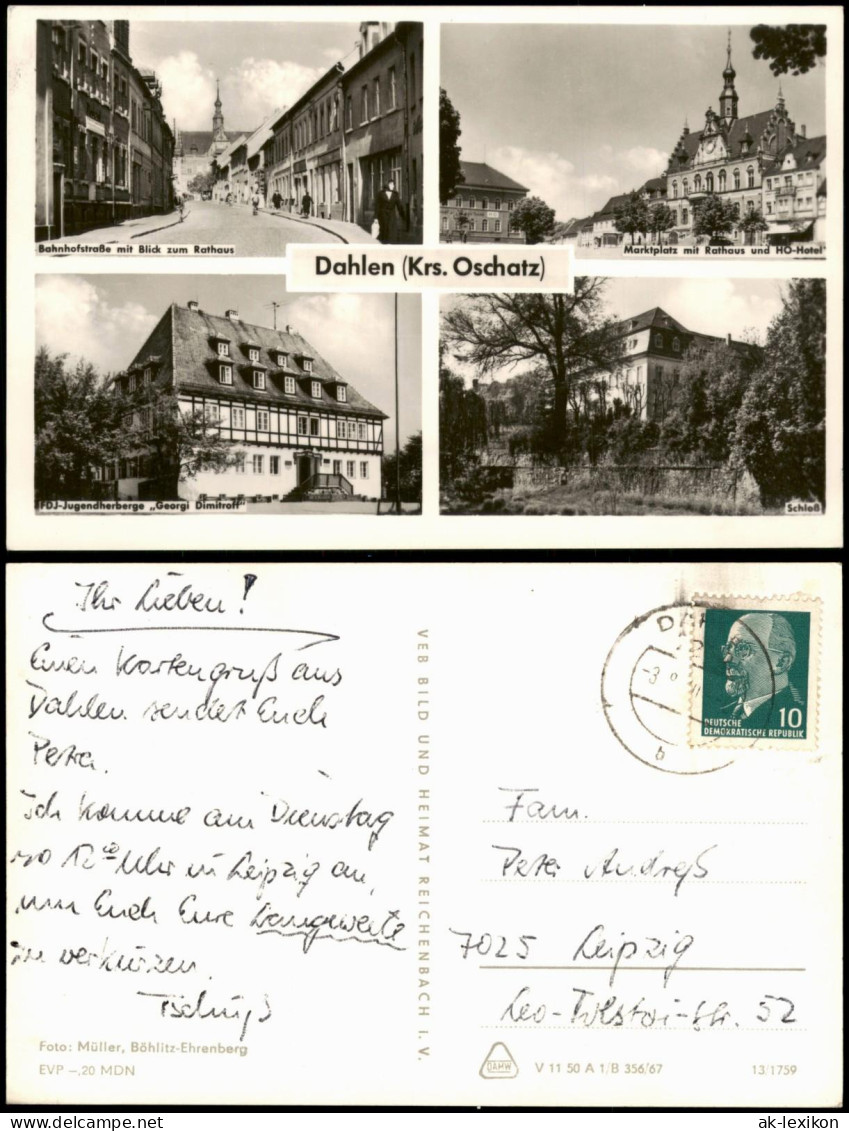 Bahnhofstraße mit Blick zum Rathaus
Marktplatz mit Rathaus und HO-Hotel
Dahlen (Krs. Oschatz)
FDJ-Jugendherberge „Georgi Dimitroff"
Schloß
Ihr Lieben!
Einen Kartengruß aus
Dahlen sendet Euch
Petra.
Ich komme am Dienstag
so 12⁰⁰ Uhr in Leipzig an,
um Euch Eure Langeweile
zu verkürzen.
Tschüß
Foto: Müller, Böhlitz-Ehrenberg
EVP –,20 MDN
VEB BILD UND HEIMAT REICHENBACH I. V.
b
10
DEUTSCHE
DEMOKRATISCHE REPUBLIK
Fam.
Peter Andreß
7025 Leipzig
Leo-Tolstoi-Str. 52
DAMW
V 11 50 A 1/B 356/67
13/1759
ak-lexikon.com